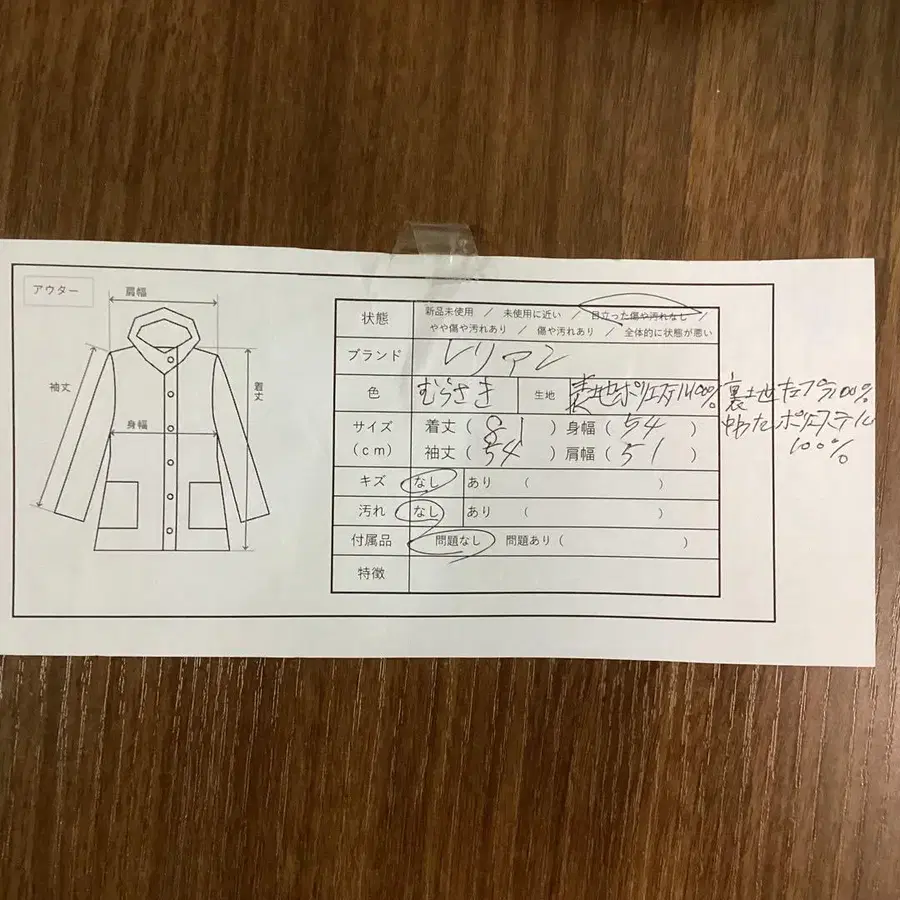 アウター
肩幅
袖丈
着丈
身幅
状態 新品未使用 / 未使用に近い / 目立った傷や汚れなし /
やや傷や汚れあり / 傷や汚れあり / 全体的に状態が悪い
ブランド レリアン
色 むらさき 生地 表地ポリエステル100% 裏地キュプラ100%
中わたポリエステル
100%
サイズ (cm) 着丈 ( 81 ) 身幅 ( 54 )
袖丈 ( 54 ) 肩幅 ( 51 )
キズ なし あり ( )
汚れ なし あり ( )
付属品 問題なし 問題あり ( )
特徴